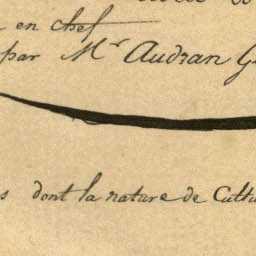 en chef
par Mr Audran G
s dont la nature de Cultu